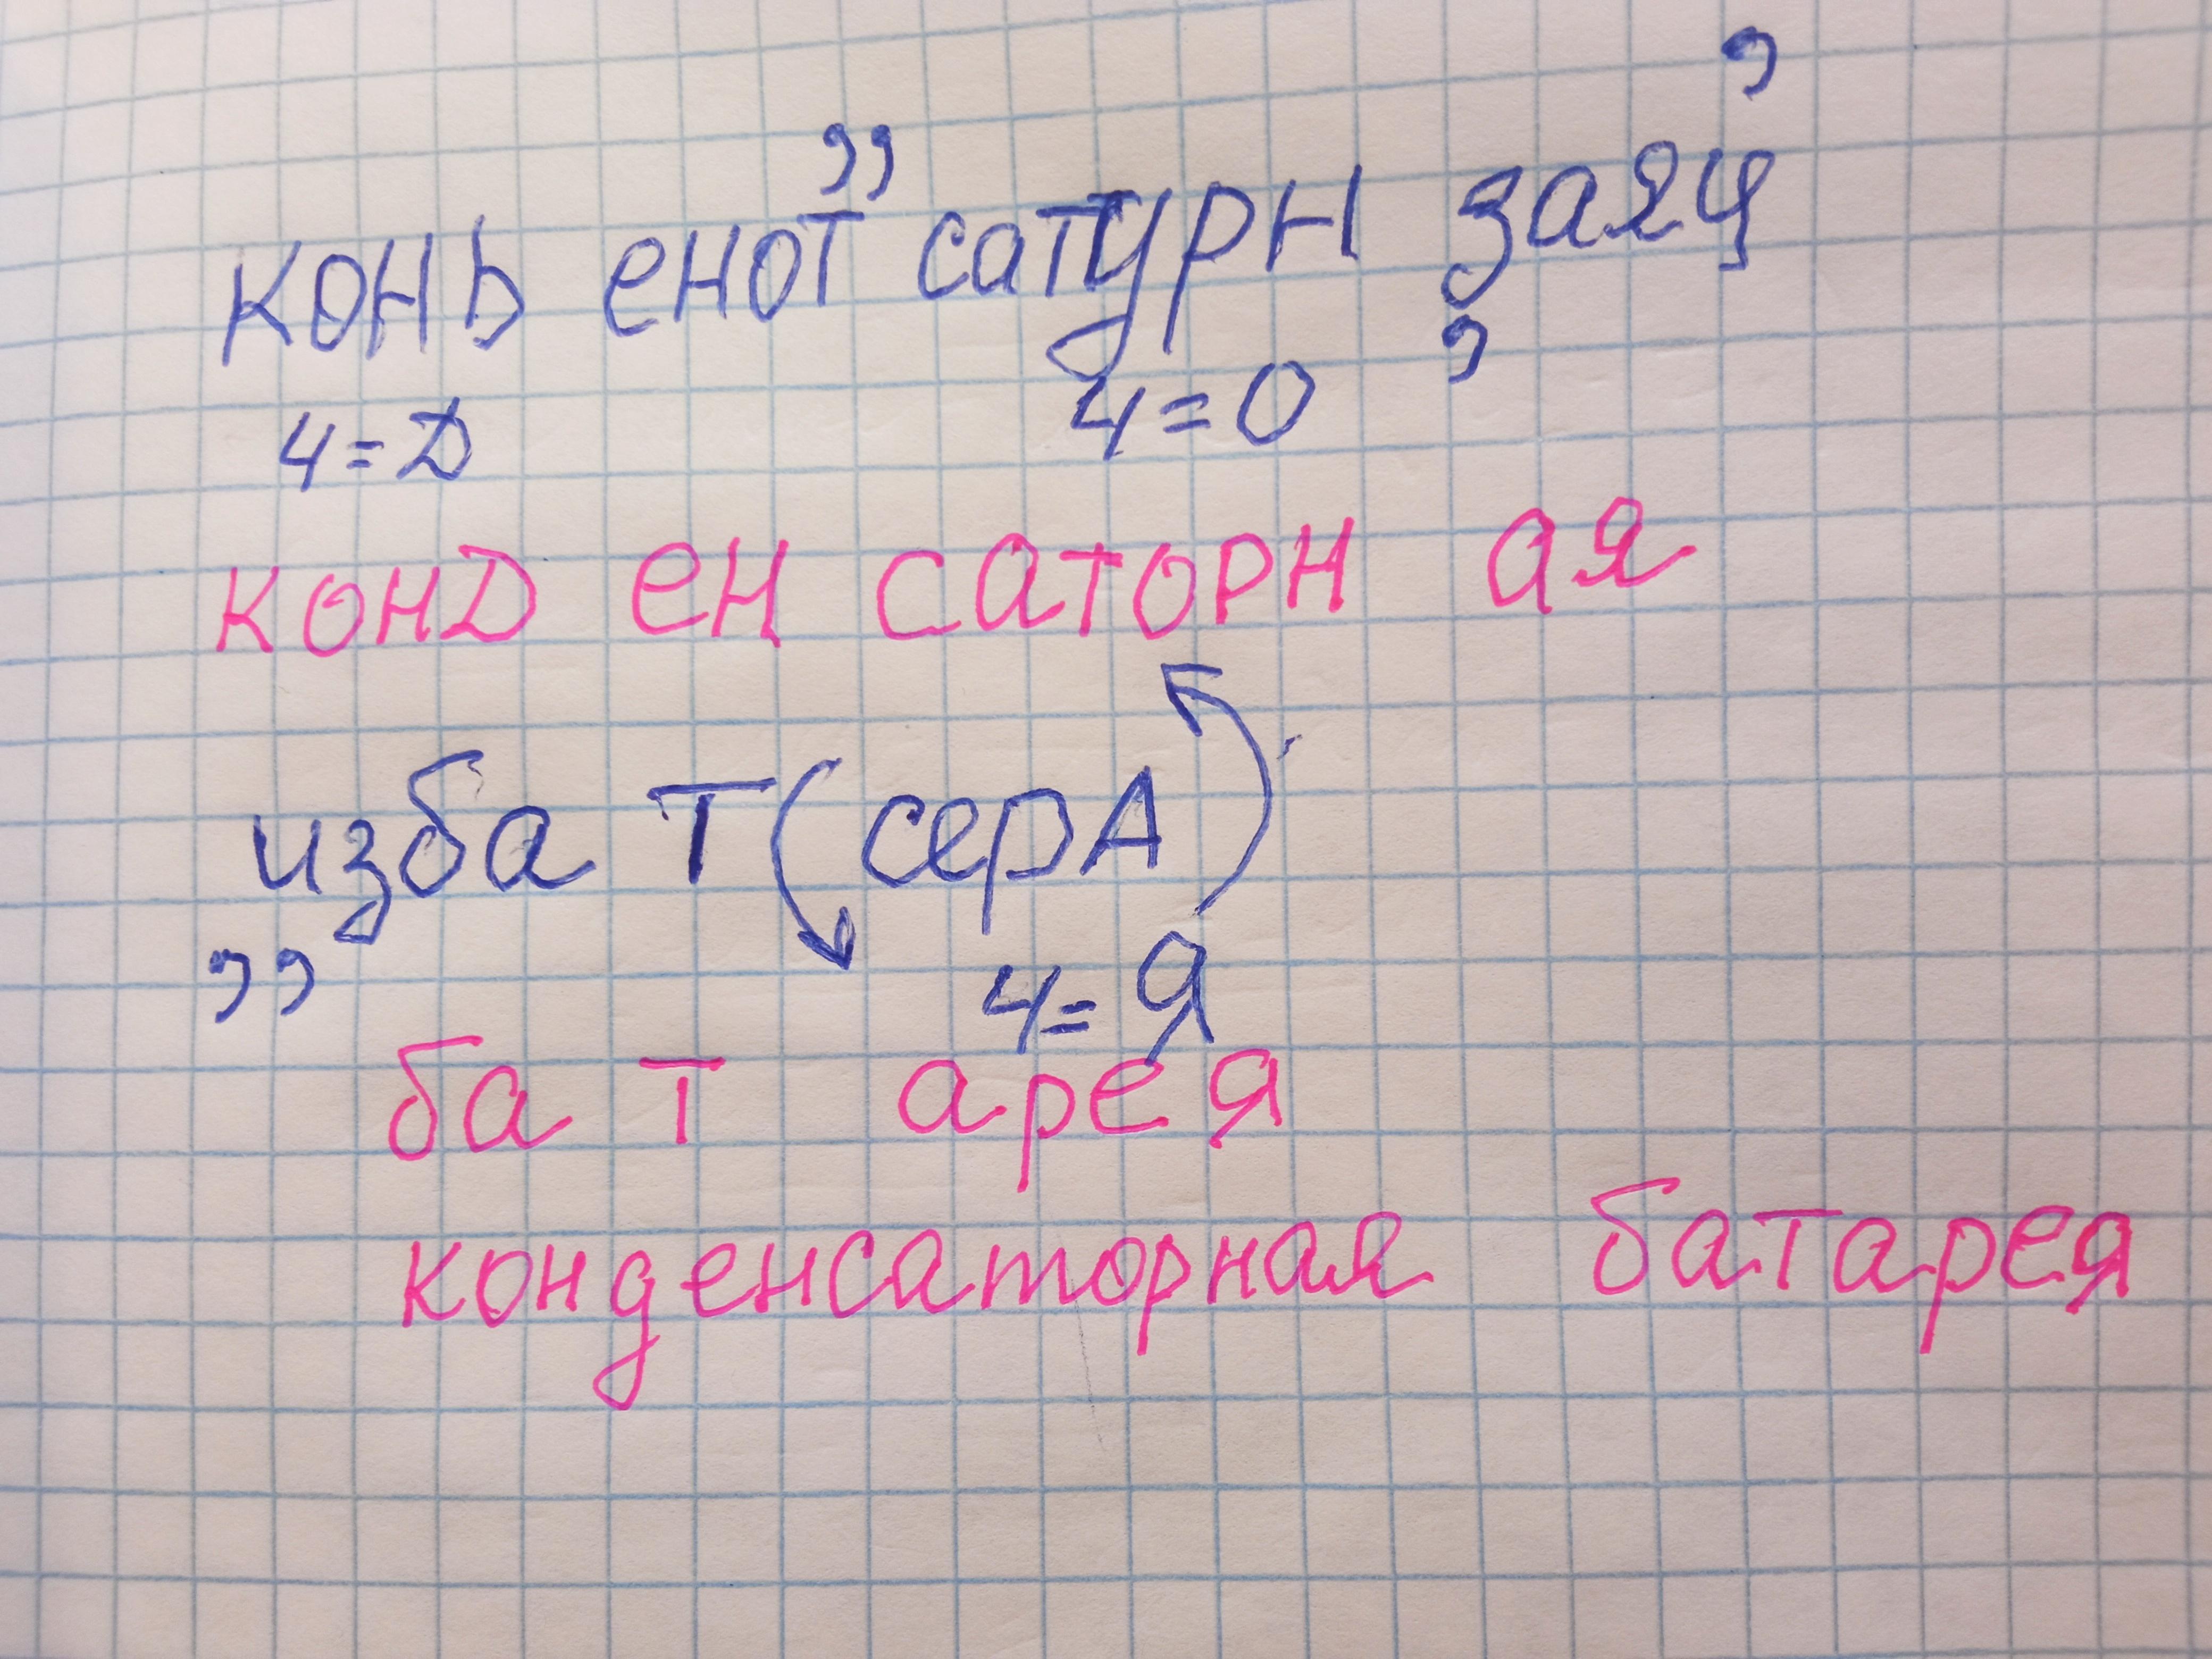 ,
,,
конь енот сатурн заяц
4=Д 4=О ,
конД ен саторн ая
изба Т ( серА )
,, 4=Я
ба т арея
конденсаторная батарея